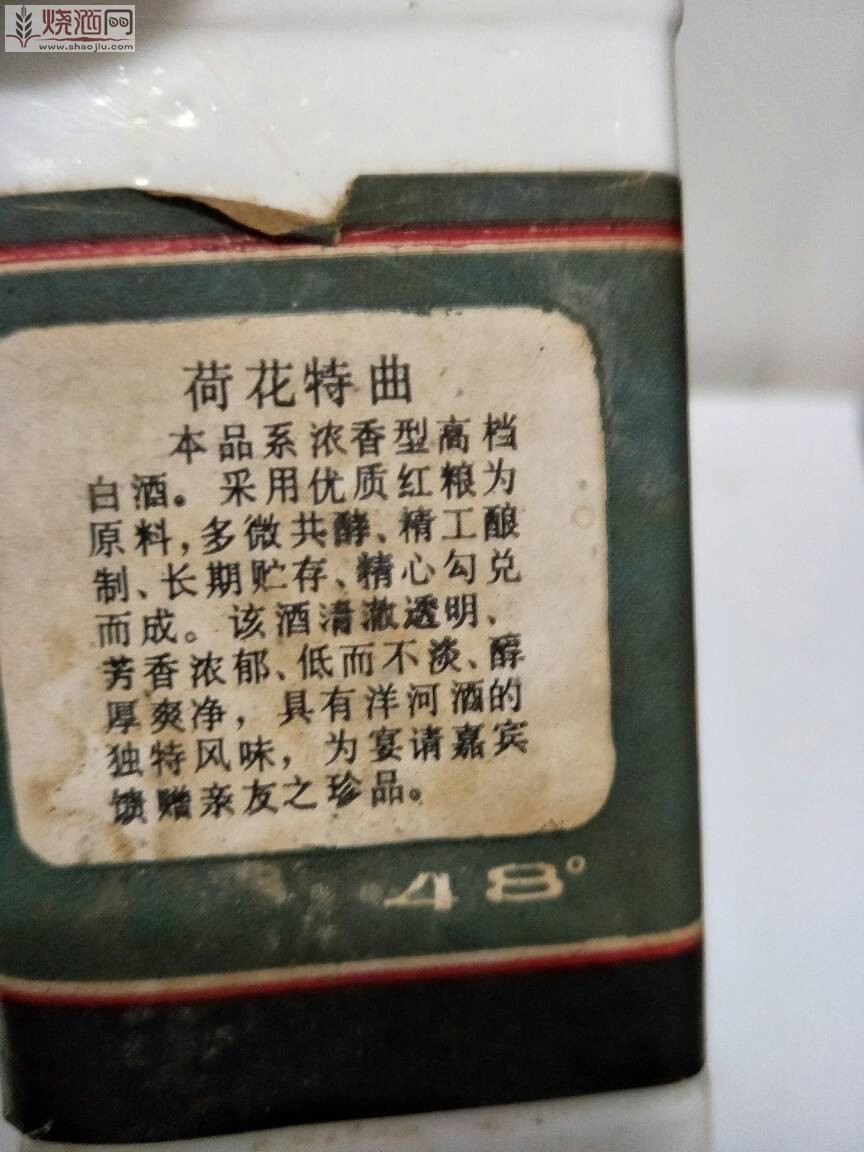 烧酒网
www.shaojiu.com
荷花特曲
本品系浓香型高档
白酒。采用优质红粮为
原料,多微共酵、精工酿
制、长期贮存、精心勾兑
而成。该酒清澈透明、
芳香浓郁、低而不淡、醇
厚爽净，具有洋河酒的
独特风味，为宴请嘉宾
馈赠亲友之珍品。
48°